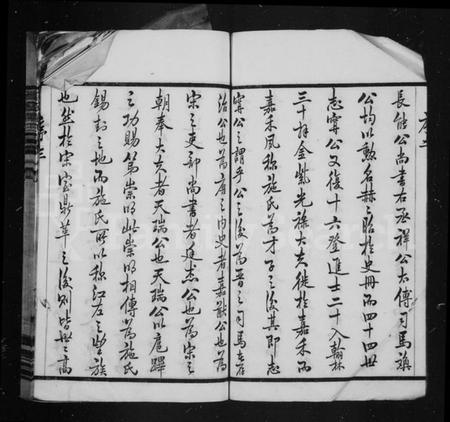 長能公尚書右丞祥公太傅司馬顗
公均以勳名赫赫昭於史冊而四十四世
志甯公又復十六登進士二十入翰林
三十拜金紫光祿大夫徙於嘉禾而
嘉禾夙称施氏多才子之後其即志
甯公之謂乎公之後為晋之司馬者
治公也為唐之内史者嘉猷公也為
宋之吏部尚書者延杰公也為宋之
朝奉大夫者天瑞公也天瑞公以扈蹕
之功賜第崇明此崇明相傳以為施氏
錫封之地而施氏所以称江左之望族
也然於宋室鼎革之後則皆世之高